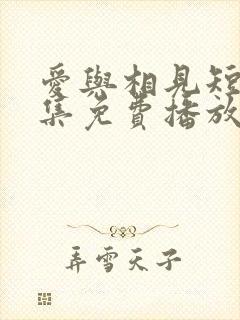 愛與相見短
集免費播放
弄雪天子